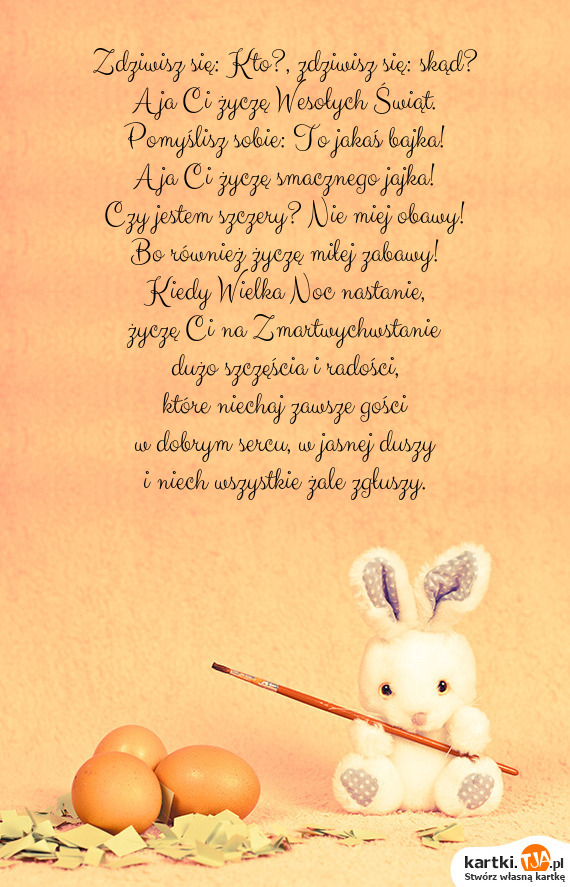 Zdziwisz się: Kto?, zdziwisz się: skąd?
A ja Ci życzę Wesołych Świąt.
Pomyślisz sobie: To jakaś bajka!
A ja Ci życzę smacznego jajka!
Czy jestem szczery? Nie miej obawy!
Bo również życzę miłej zabawy!
Kiedy Wielka Noc nastanie,
życzę Ci na Zmartwychwstanie
dużo szczęścia i radości,
które niechaj zawsze gości
w dobrym sercu, w jasnej duszy
i niech wszystkie żale zgłuszy.
kartki.TJA.pl
Stwórz własną kartkę